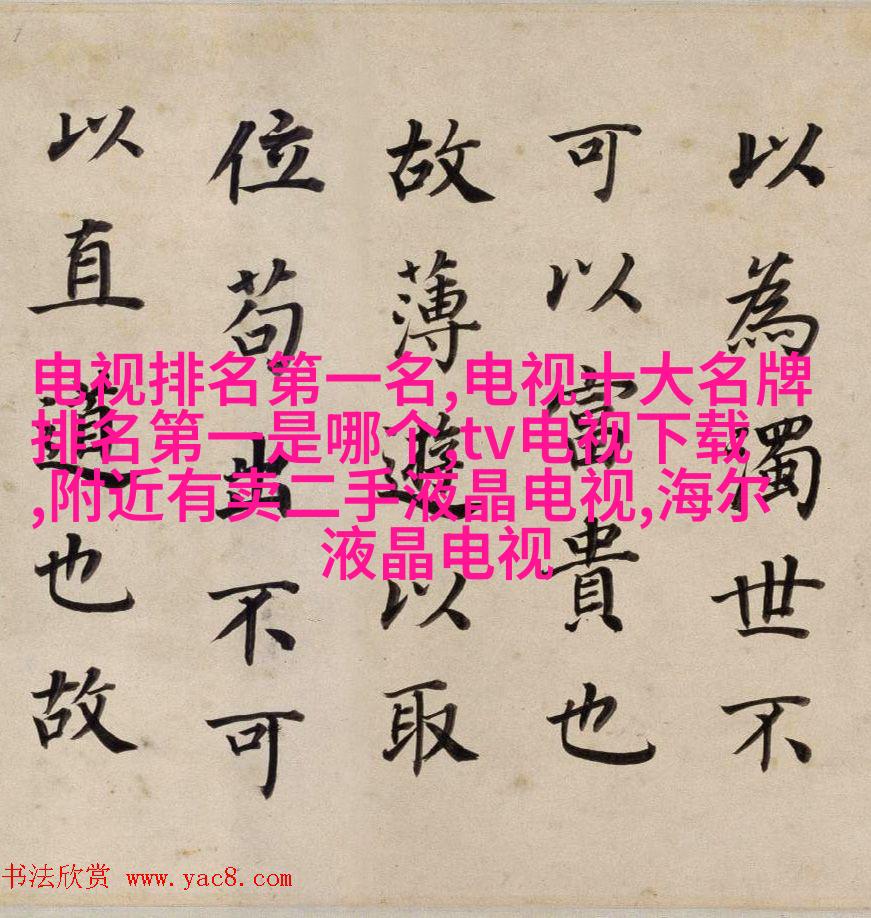 以為濁世不
可以富貴也
故薄遊以取
位苟出不可
以直道也故
电视排名第一名,电视十大名牌
排名第一是哪个,tv电视下载
,附近有卖二手液晶电视,海尔
液晶电视
书法欣赏 www.yac8.com